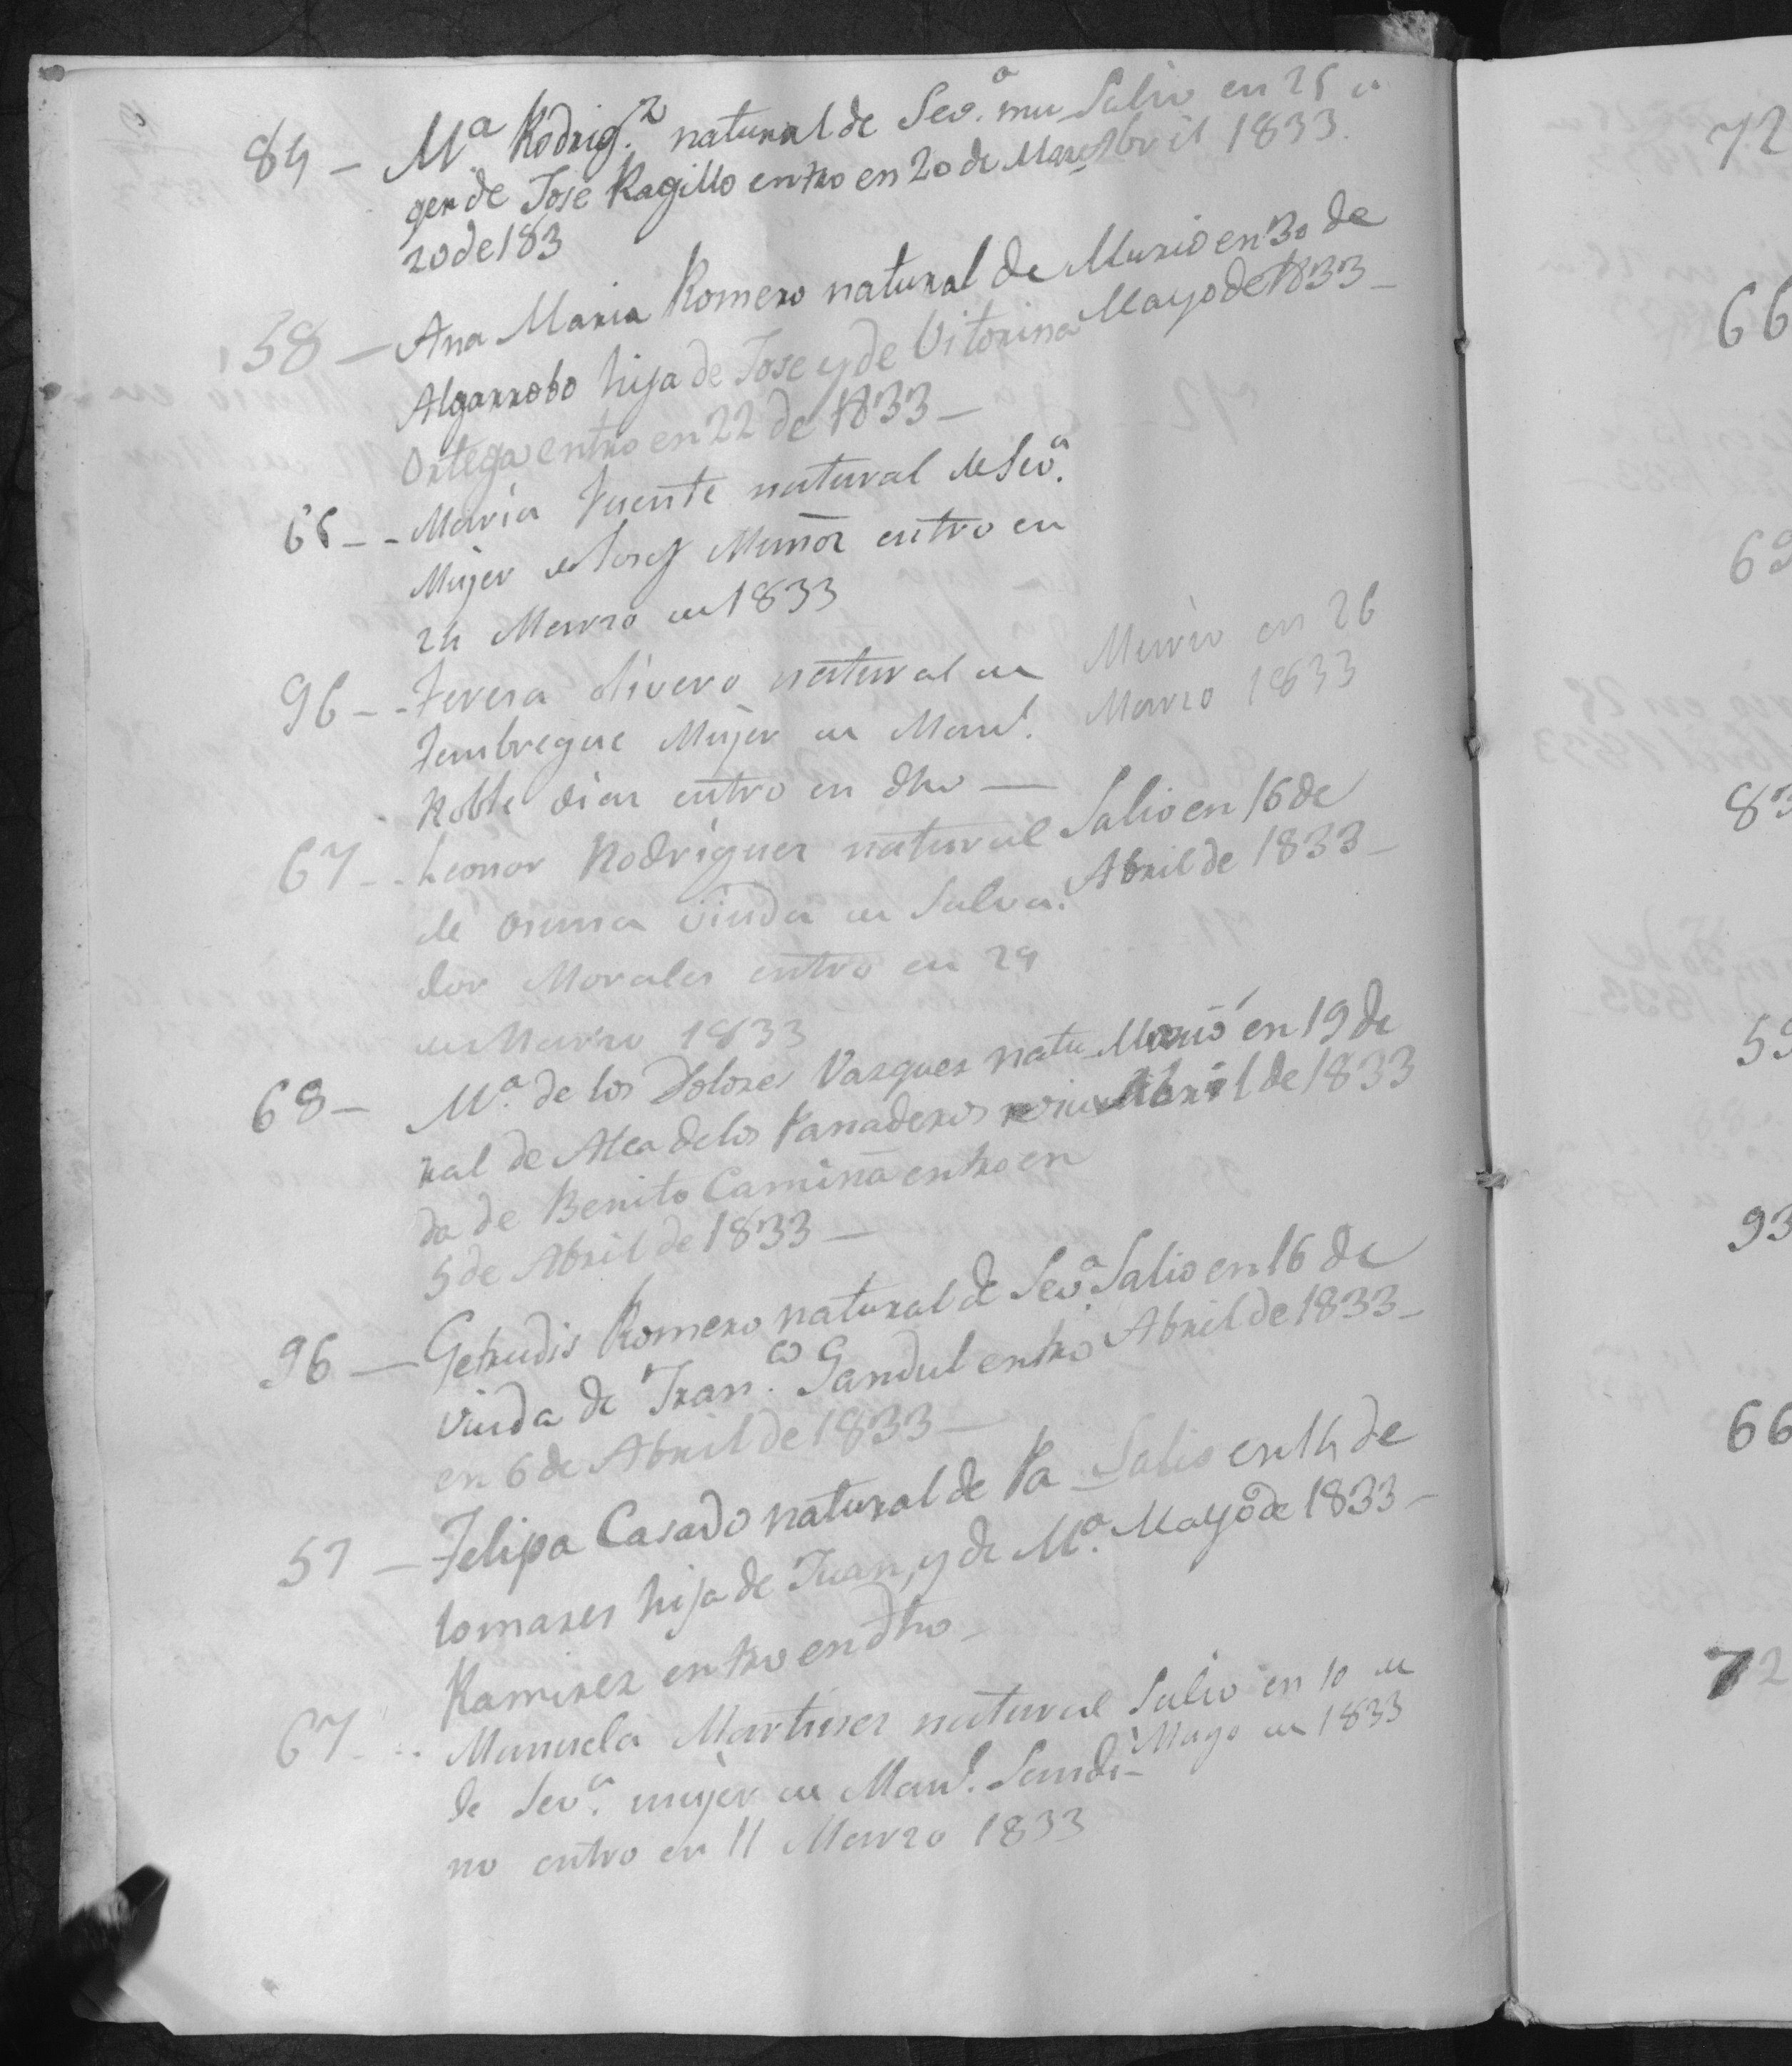 84 — Mª Rodrigz natural de Sevª mu
ger de Jose Ragillo entro en 20 de Mar
zo de 183
Salio en 25 
Abril 1833.
58 — Ana Maria Romero natural de
Algarrobo hija de Jose y de Vitorina
Ortega entro en 22 de 1833 —
Murio en 30 de
Mayo de 1833 —
66 - - Maria Fuente natural de Sevª.
Mujer de Josef Muñoz entro en
24 Marzo de 1833
96 - - Teresa olivero natural de
Tembregue Mujer de Manl.
Roble dias entro en dho —
Murio en 26
Marzo 1833
67 - - Leonor Rodriguez natural
de osuna viuda de Salva.
dor Morales entro en 29
de Marzo 1833
Salio en 16 de
Abril de 1833 —
68 — Mª. de los Dolores Vazquez natu
ral de Alca de los Panaderos viu
da de Benito Camiña entro en
5 de Abril de 1833 —
Murió en 19 de
Abril de 1833
96 — Getrudis Romero natural de Sevª
viuda de Franco. Gandul entro
en 6 de Abril de 1833 —
Salio en 16 de
Abril de 1833 —
57 — Felipa Casado natural de Pa
lomares hija de Juan, y de Mª.
Ramirez entro en dho —
Salio en 14 de
Mayo de 1833 —
67 - - Manuela Martinez natural
de Sevª. mujer de Manl. Sandi-
no entro en 11 Marzo 1833
Salio en 10 de
Mayo de 1833
72
66
69
83
59
93
66
72